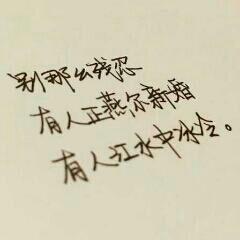 别那么残忍
有人正燕尔新婚
有人江水中泳冷。